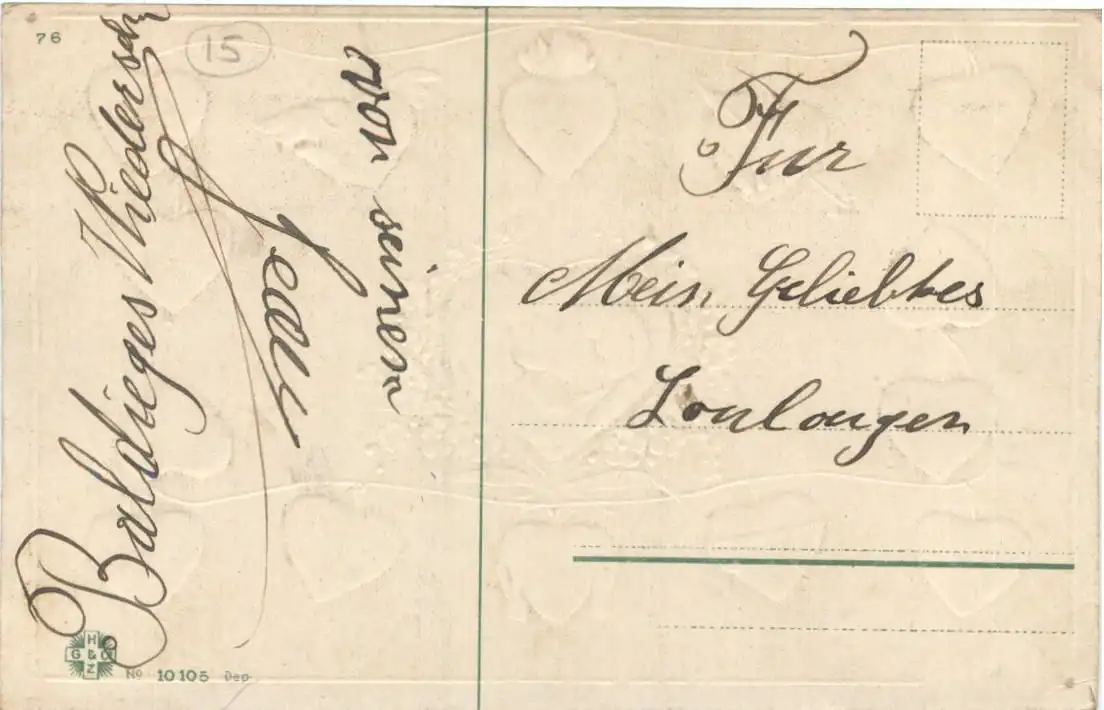 76
15
Baldieges Wiedersehn
von seinen
Jean
Fur
Mein Geliebtes
Loulougen
H
G & C
Z
No 10105 Dep